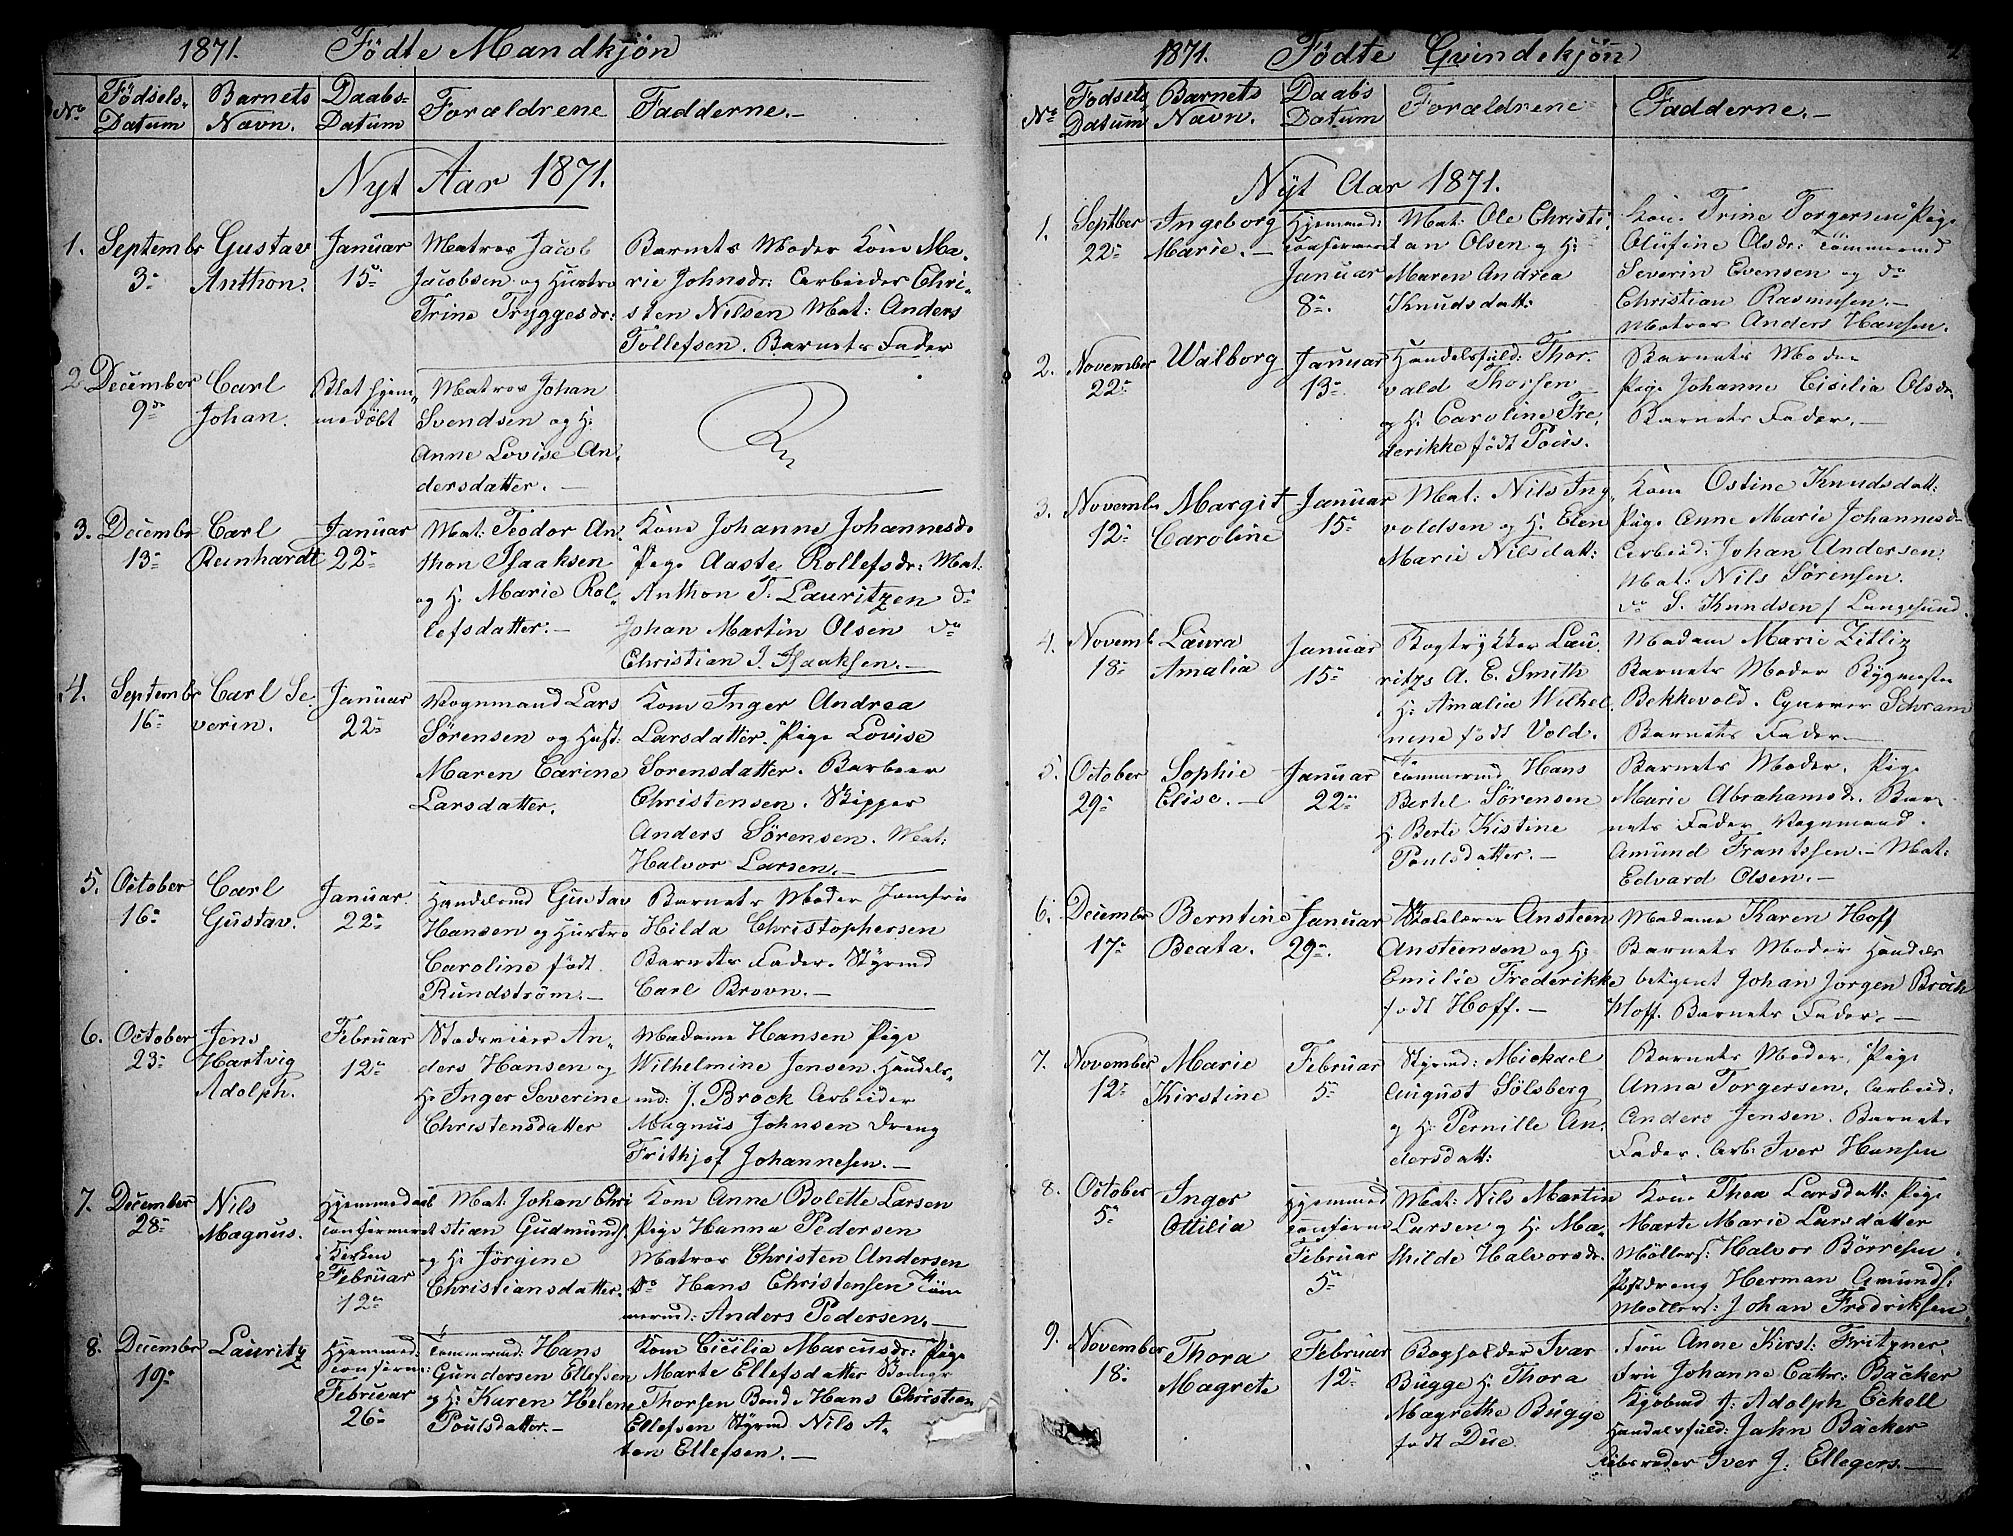 1871. Födte Mandkjön
No Födsels Datum Barnets Navn. Daabs Datum Forældrene Fadderne.
Nyt Aar 1871.
1. Septembr 3 Gustav Anthon. Januar 15
Matros Jacob
Jacobsen og Hustro
Trine Tryggesdr:
Barnets Moder Kone Ma-
rie Johnsdr: Arbeider Chri-
sten Nilsen Mat: Anders
Tollefsen. Barnets Fader
2 December 9de Carl Johan. Blot hjem- medöbt
Matros Johan
Svendsen og H:
Anne Lovise An-
dersdatter.
3. Decembr 13 Carl Reinhardt Januar 22
Mat: Teodor An-
thon Isaaksen
og H: Marie Rol-
lefsdatter.
Kone Johanne Johannesdr
Pige Aaste Rollefsdr: Mat:
Anthon T. Lauritzen do
Johan Martin Olsen do
Christian J. Isaaksen.
4. Septembr 16 Carl Se- verin. Januar 22
Vognmand Lars
Sörensen og Hust:
Maren Carine
Larsdatter.
Kone Inger Andrea
Larsdatter. Pige Lovise
Sorensdatter. Barbeer
Christensen. Skipper
Anders Sörensen. Mat:
Halvor Larsen.
5. October 16 Carl Gustav. Januar 22
Handelsmd Gustav
Hansen og Hustro
Caroline födt
Rundström.
Barnets Moder Jomfru
Hilda Christophersen
Barnets Fader. Styrmd
Carl Brovn.
6. October 23 Jens Hartvig Adolph. Februar 12
An-
ders Hansen og
H: Inger Severine
Christensdatter
Madame Hansen Pige
Wilhelmine Jensen, Handels-
md: J. Brock Arbeider
Magnus Johnsen Dreng
Frithjof Johannesen.
7. December 28 Nils Magnus. Hjemmedöbt Confirmeret i Kirken Februar 12
Mat: Johan Chri
stian Gudmunds:
og H: Jörgine
Christiansdatter.
Kone Anne Bolette Larsen
Pige Hanna Pedersen
Matros Christen Andersen
do Hans Christensen Töm
mermd: Anders Pedersen.
8. Decembr 19 Lauritz Hjemmed: Confirm: Februar 26
Tömmermd: Hans
Gundersen Ellefsen
og H: Karen Helene
Poulsdatter.
Kone Cicilia Marcusdr: Pige
Marte Ellefsdatter
Thorsen Hans Christian
Ellefsen Styrmd Nils A-
ten Ellefsen.
1871. Födte Qvindekjön
No Födsels Datum Barnets Navn. Daabs Datum Forældrene Fadderne.
Nyt Aar 1871.
1. Septbber 22 Ingeborg Marie. Hjemmed: Confirmeret Januar 8
Mat: Ole Christi-
an Olsen og H:
Maren Andrea
Knudsdatt:
Kone Trine Torgersen Pige
Olufine Olsdr: Tömmermd
Severin Evensen og do
Christian Rasmusen.
Matros Anders Hansen.
2. November 22 Walborg Januar 13
Handelsfuld: Thor-
vald Thorsen
og H: Caroline Fre-
derikke födt Poüs.
Barnets Moder
Pige Johanne Cisilia Olsdr.
Barnets Fader.
3. Novembr 12 Margit Caroline Januar 15
Mat: Nils Ing-
voldsen og H: Elen
Marie Nilsdatt:
Kone Ostine Knudsdatt:
Pige Anne Marie Johannesdr
Arbeid: Johan Andersen.
Mat: Nils Sörensen.
do S. Knudsen f Langesund.
4. Novemb. 18 Laura Amalia Januar 15
Bogtrykker Lau-
ritzs A. E. Smith
H: Amalia Wilhel-
mine födt Vold.
Madam Marie Zitliz
Barnets Moder Bygmester
Bekkevold. Schram
Barnets Fader
5. October 29 Sophie Elise. Januar 22
Tömmermd Hans
Bertel Sörensen
H: Berte Kistine
Poulsdatter.
Barnets Moder. Pige
Marie Abrahamsd. Bar-
nets Fader Vognmand.
Amund Frantssen. Mat:
Edvard Olsen.
6. Decembr 17 Berntine Beata. Januar 29
Skolelærer Ansteen
Ansteensen og H:
Emilie Frederikke
födt Hoff.
Madame Karen Hoff
Barnets Moder Handels
betjent Johan Jorgen Broch
Hoff. Barnets Fader.
7. November 12 Marie Kirstine Februar 5
Styrmd: Mickael
August Sölsberg
og H: Pernille An-
dersdatt:
Barnets Moder, Pige
Anna Torgersen, Arbeid:
Anders Jensen. Barnets
Fader. Arb: Iver Hansen
8. October 5 Inger Ottilia Hjemmed Confirm Februar 5
Mat: Nils Martin
Larsen og H: Ma-
thilde Halvorsdr.
Kone Thea Larsdatt: Pige
Marte Marie Larsdatter
Möllers: Halvor Börresen.
Postdreng Herman Amunds:
Möllers: Johan Fredriksen.
9. November 18 Thora Magrete Februar 12
Bogholder Ivar
Bugge H: Thora
Magrethe Bugge
födt Düe
Fru Anne Kirst: Fritzner
Fru Johanne Cathr: Backer
Kjöbmd A: Adolph Eckell
Handelsfuld: John Bäcker
Iver J. Ellegers.